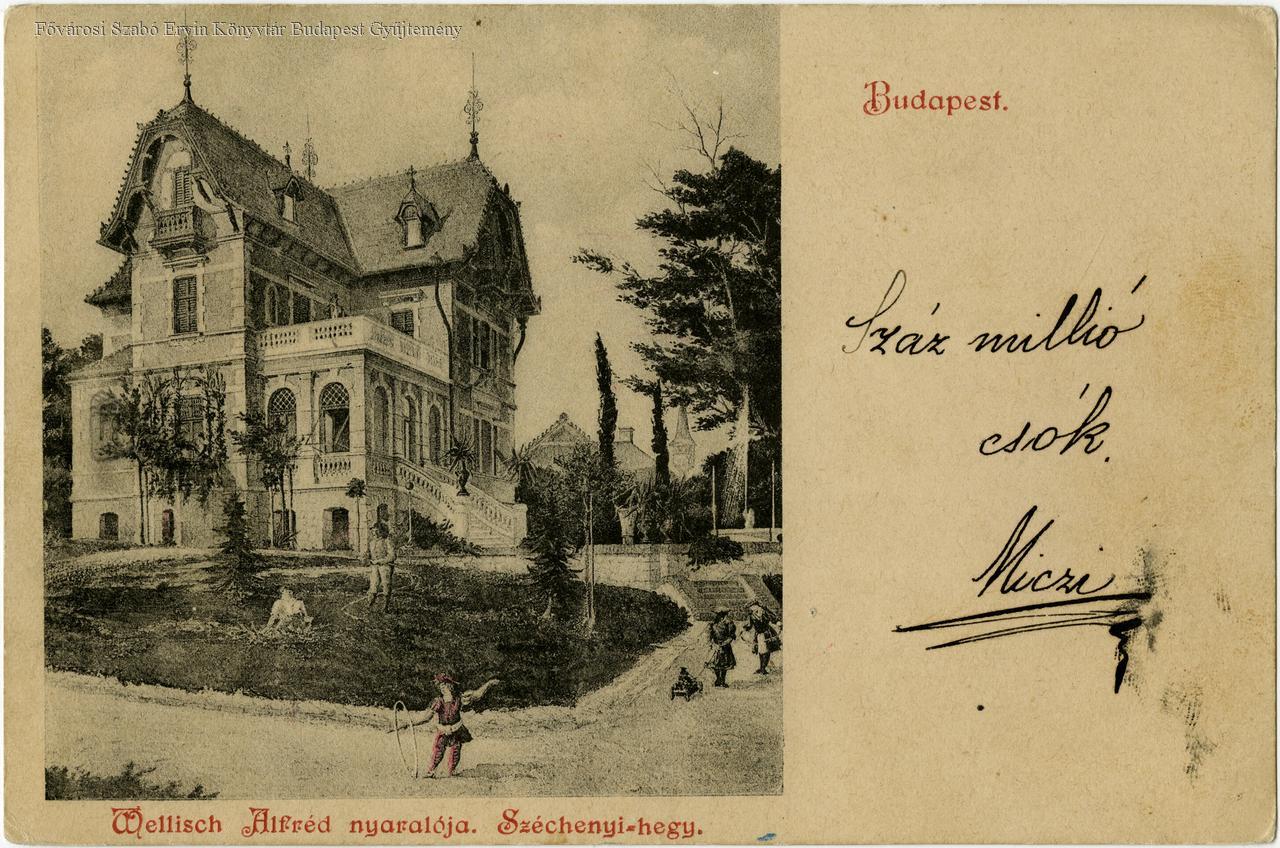 Fővárosi Szabó Ervin Könyvtár Budapest Gyűjtemény
Budapest.
Száz millió
csók.
Miczi
Wellisch Alfréd nyaralója. Széchenyi-hegy.